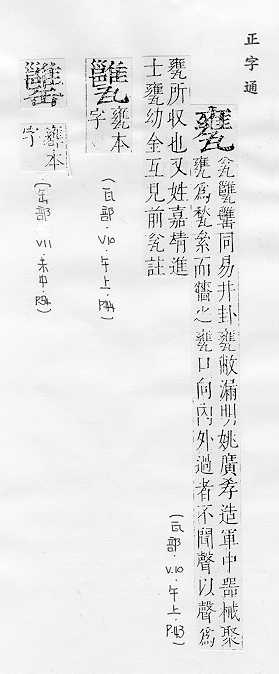 正字通
甕
瓮罋同易井卦甕敝漏明姚廣孝造軍中器械聚
甕為甃纍而牆之甕口向內外過者不聞聲以聲為
甕所收也又姓嘉靖進
士甕幼全互見前瓮註
(瓦部.V.10.午上.P.43)
甕本
字
(瓦部.V10.午上.P.44)
甕本
字
(缶部.V11.未中.P.94.)